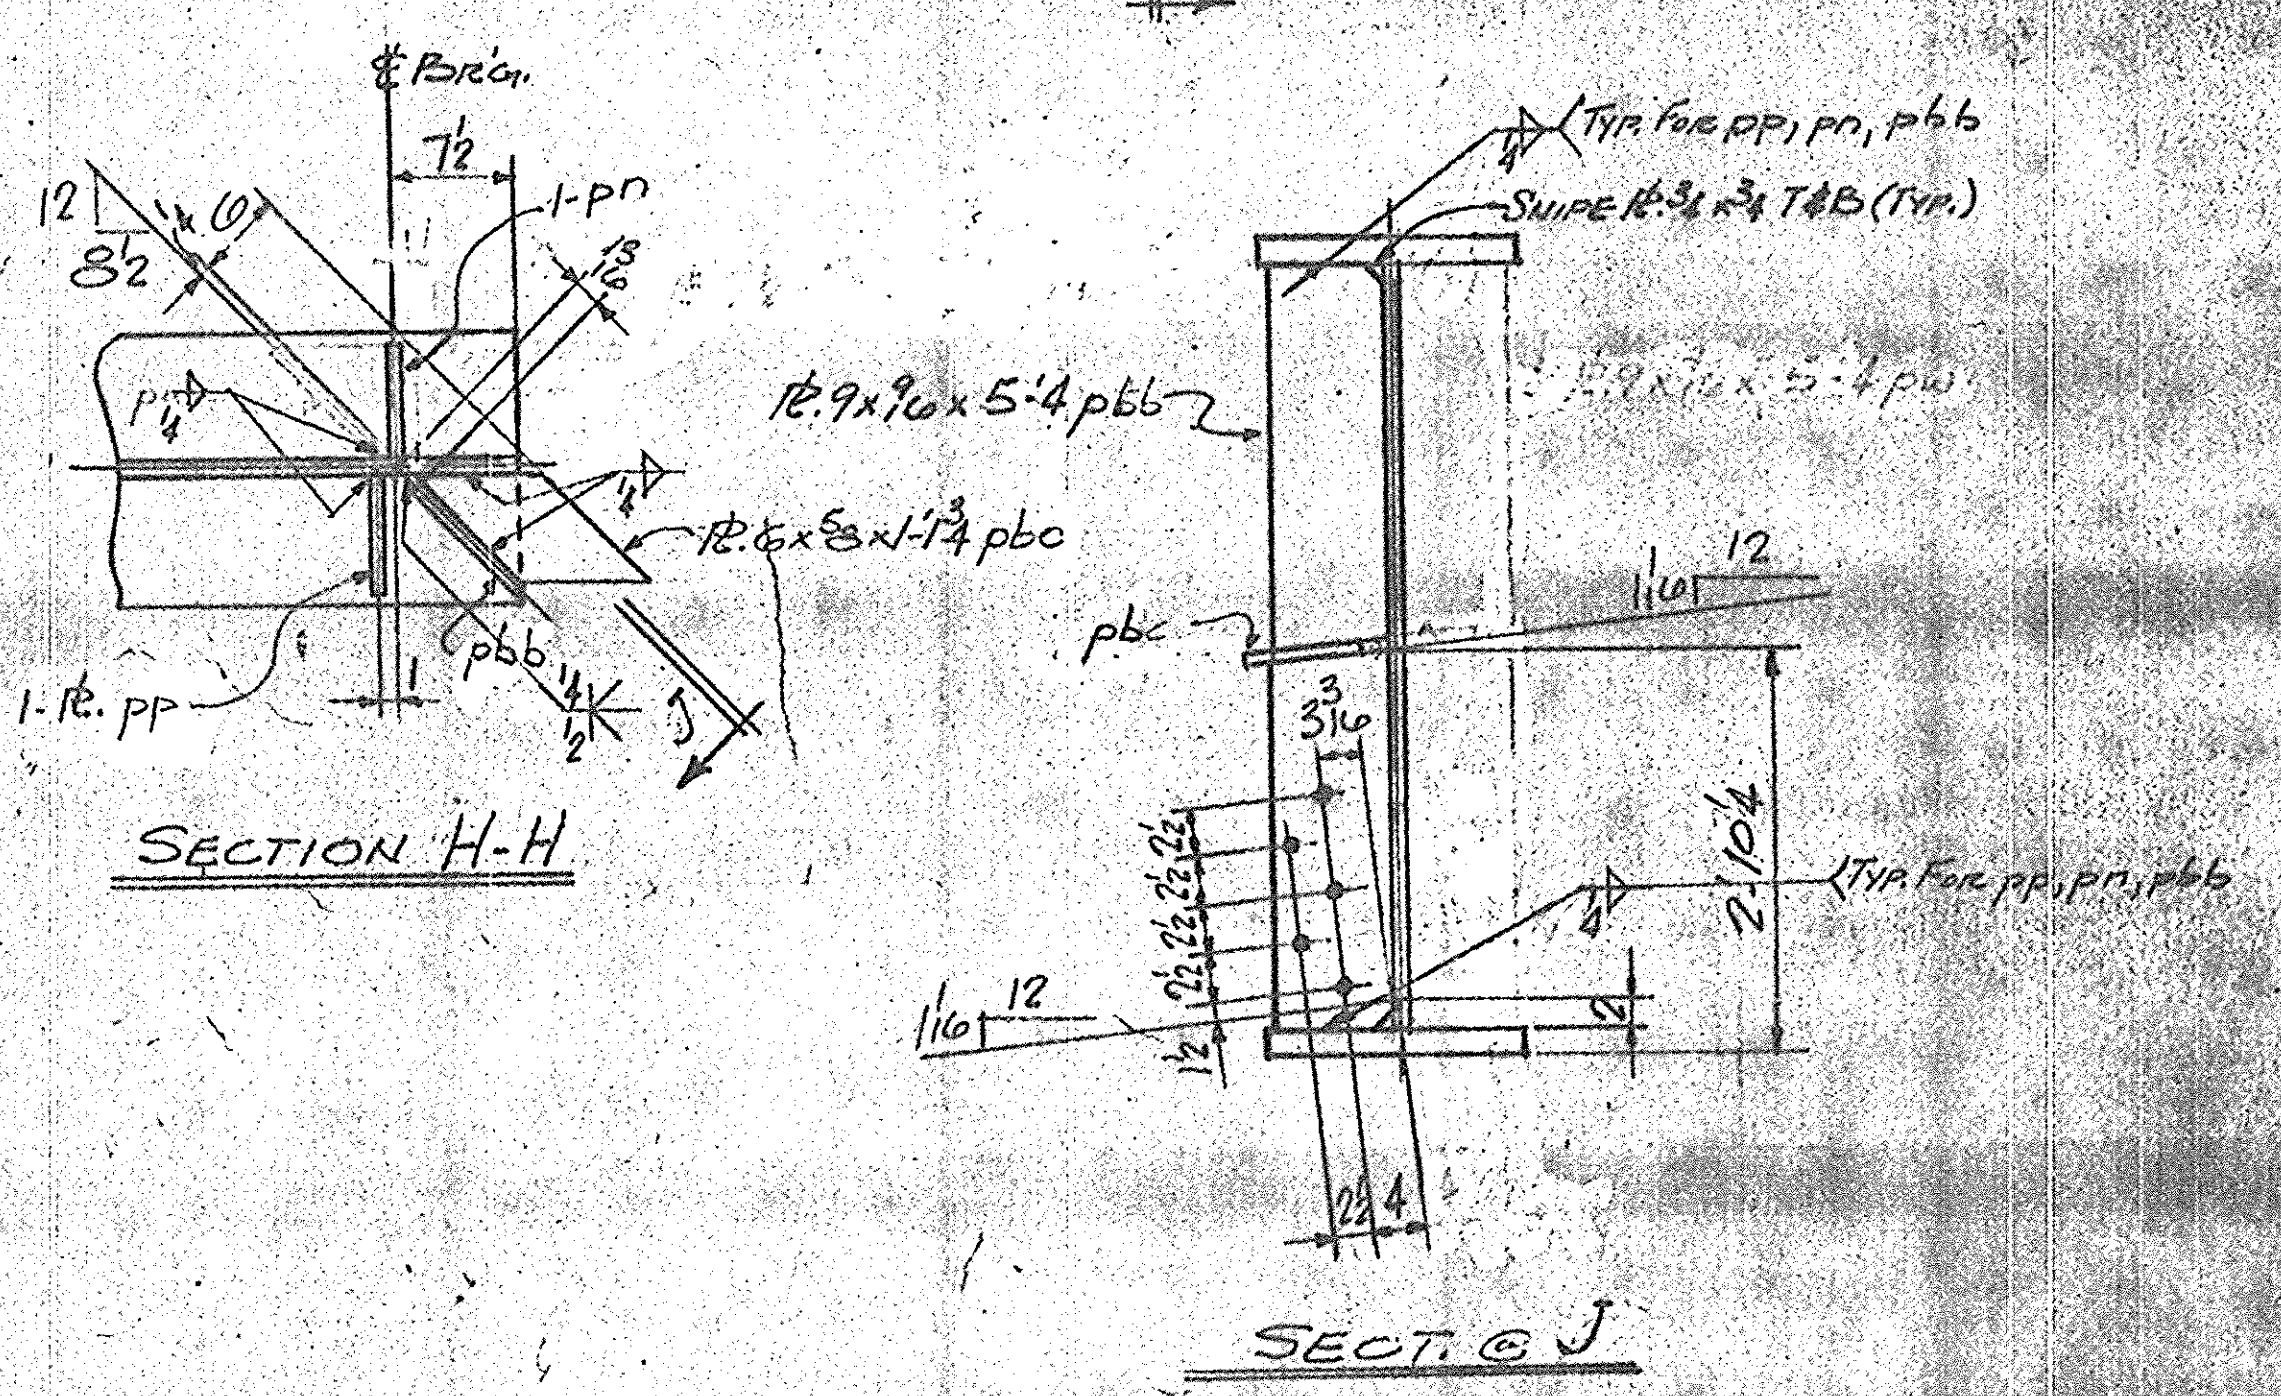 ℄ BR'G.
7 1/2
1-pn
12
8 1/2
1/4
6
13/16
1/4
1/4
PL. 6 x 5/8 x 1-1 3/4 pbc
pbb
1-PL. pp
1
1/4
1/2
J
SECTION H-H
1/4
(TYP. FOR pp, pn, pbb
SNIPE PL. 3/4 x 3/4 T&B (TYP.)
PL. 9 x 9/16 x 5-4 pbb
12
1 1/16
pbc
3 3/16
2 1/2
2 1/2
2 1/2
2 1/2
1 1/2
2'-10 1/4
1/4
(TYP. FOR pp, pn, pbb
12
1 1/16
2
2 1/2
4
SECT. @ J